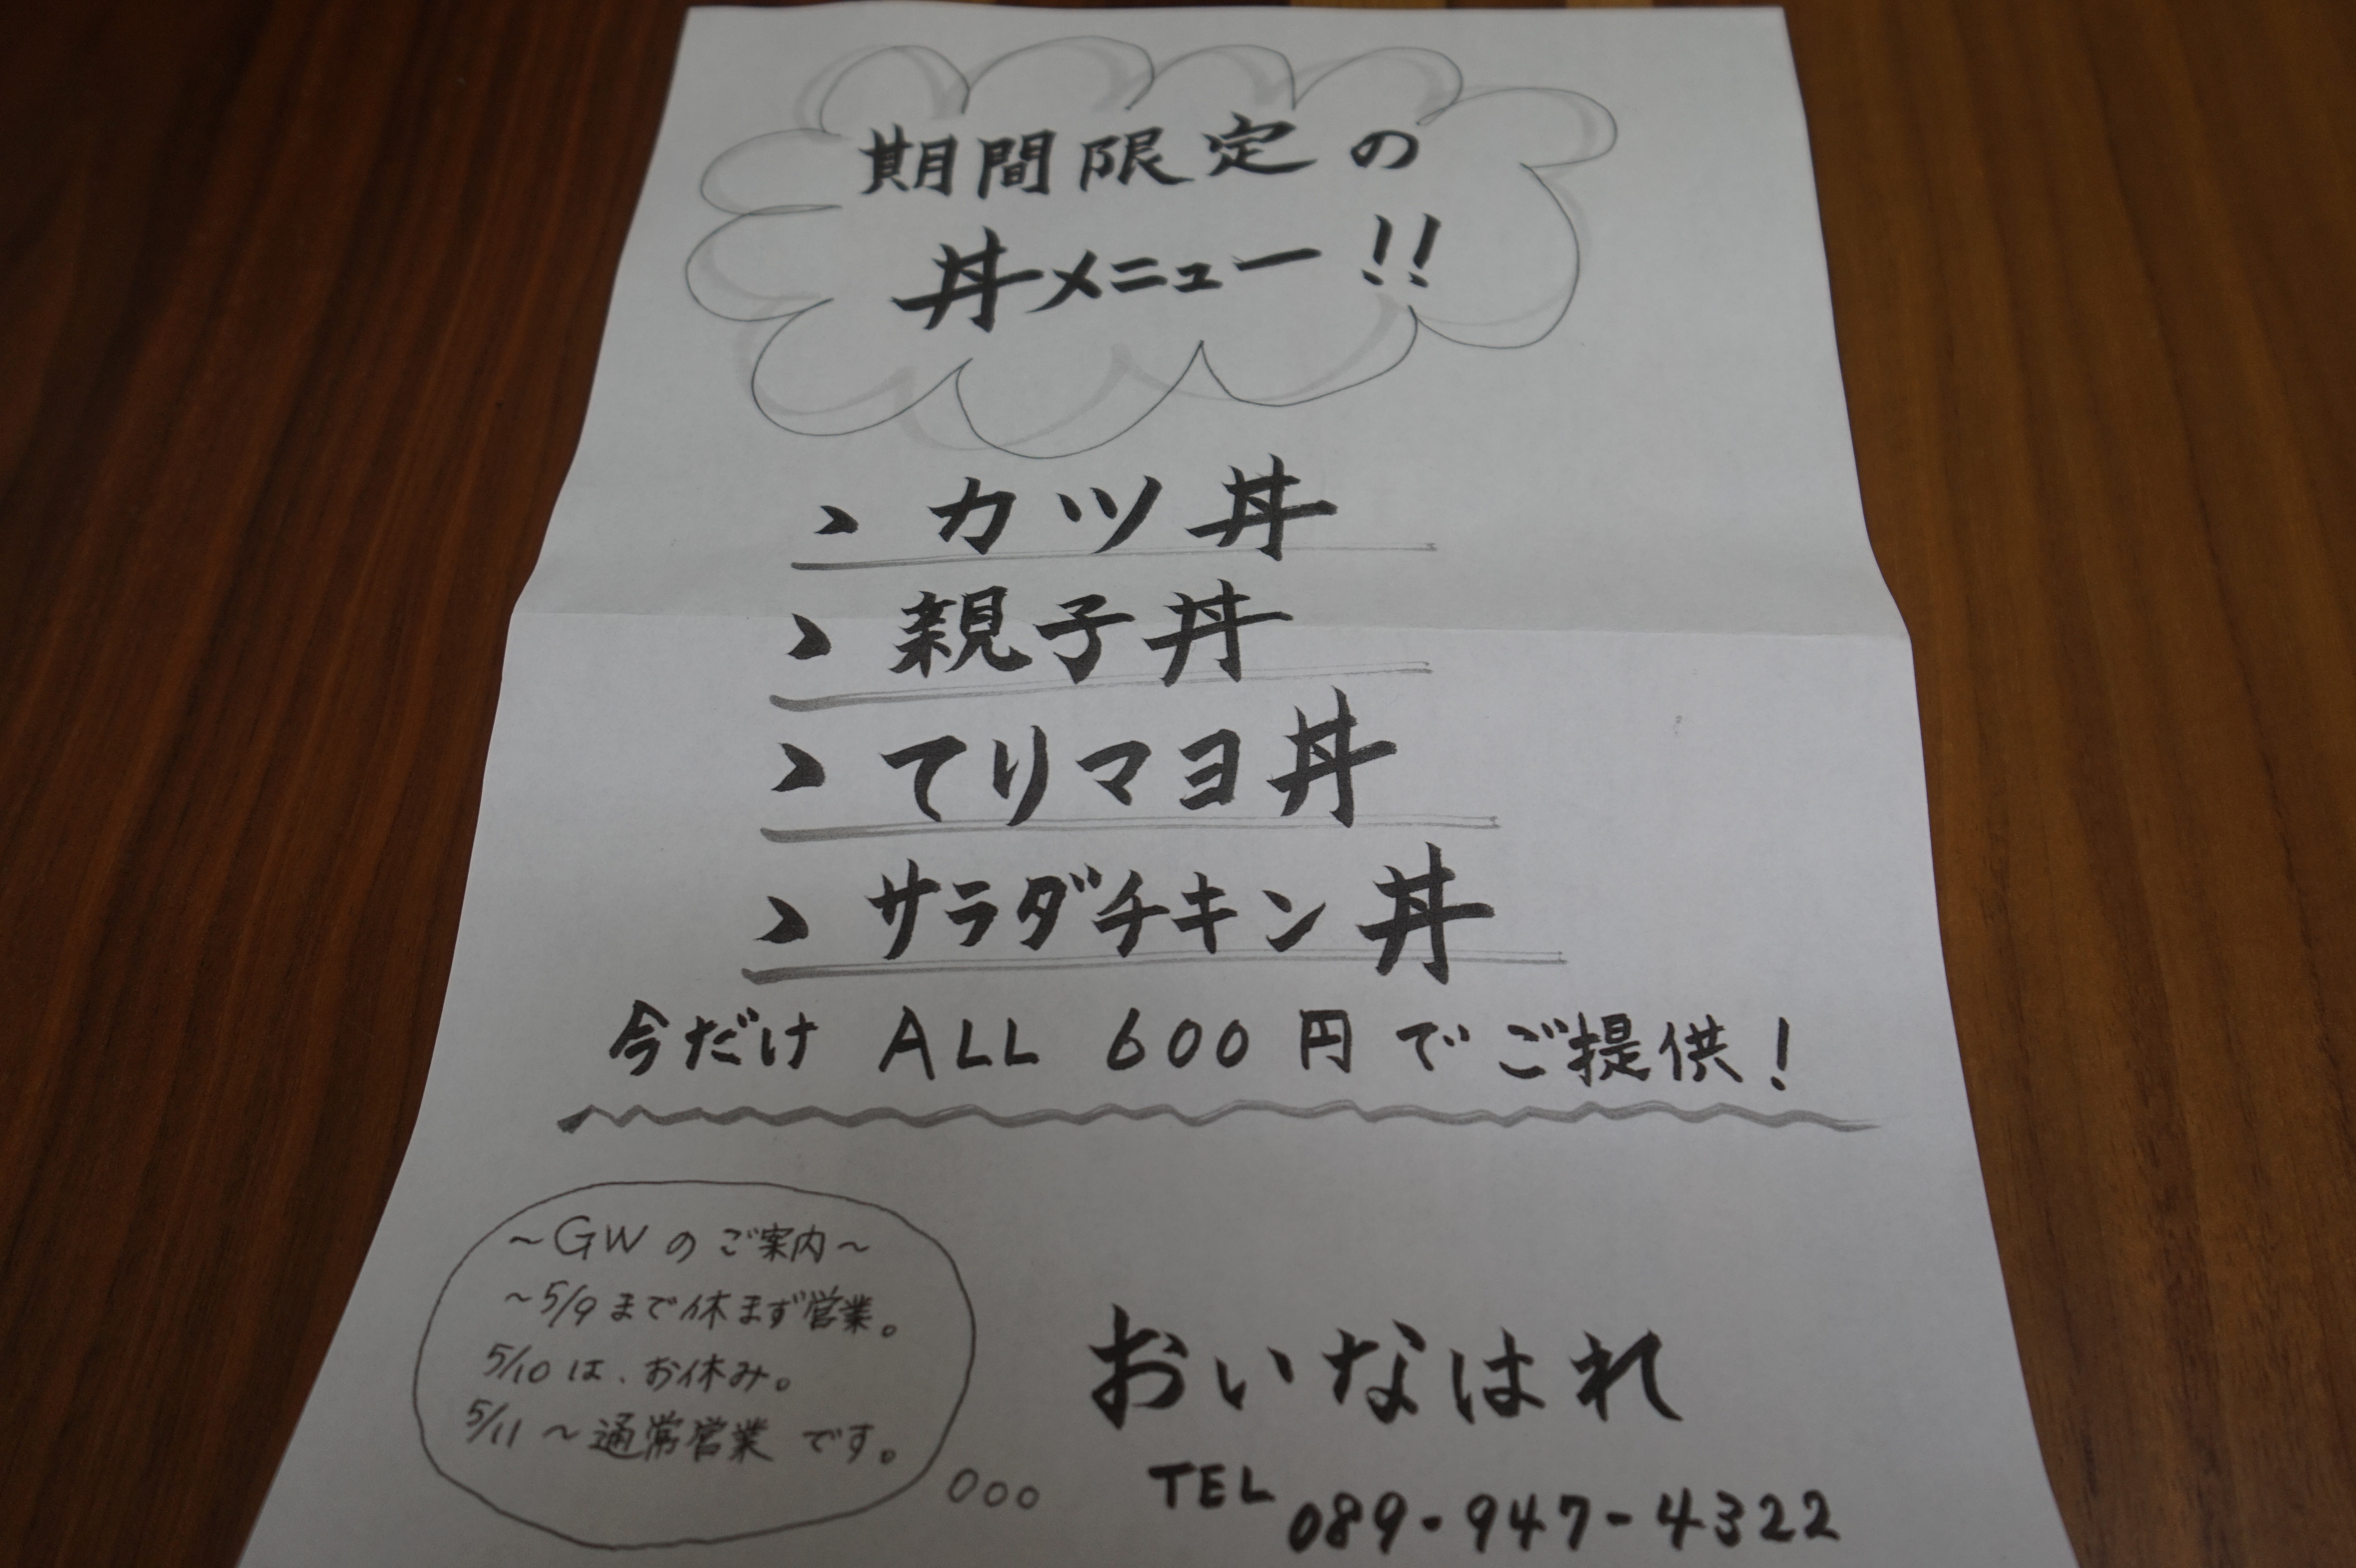 期間限定の
丼メニュー!!
、カツ丼
、親子丼
、てりマヨ丼
、サラダチキン丼
今だけ ALL 600円でご提供!
～GWのご案内～
～5/9まで休まず営業。
5/10は、お休み。
5/11～通常営業です。
おいなはれ
TEL 089-947-4322